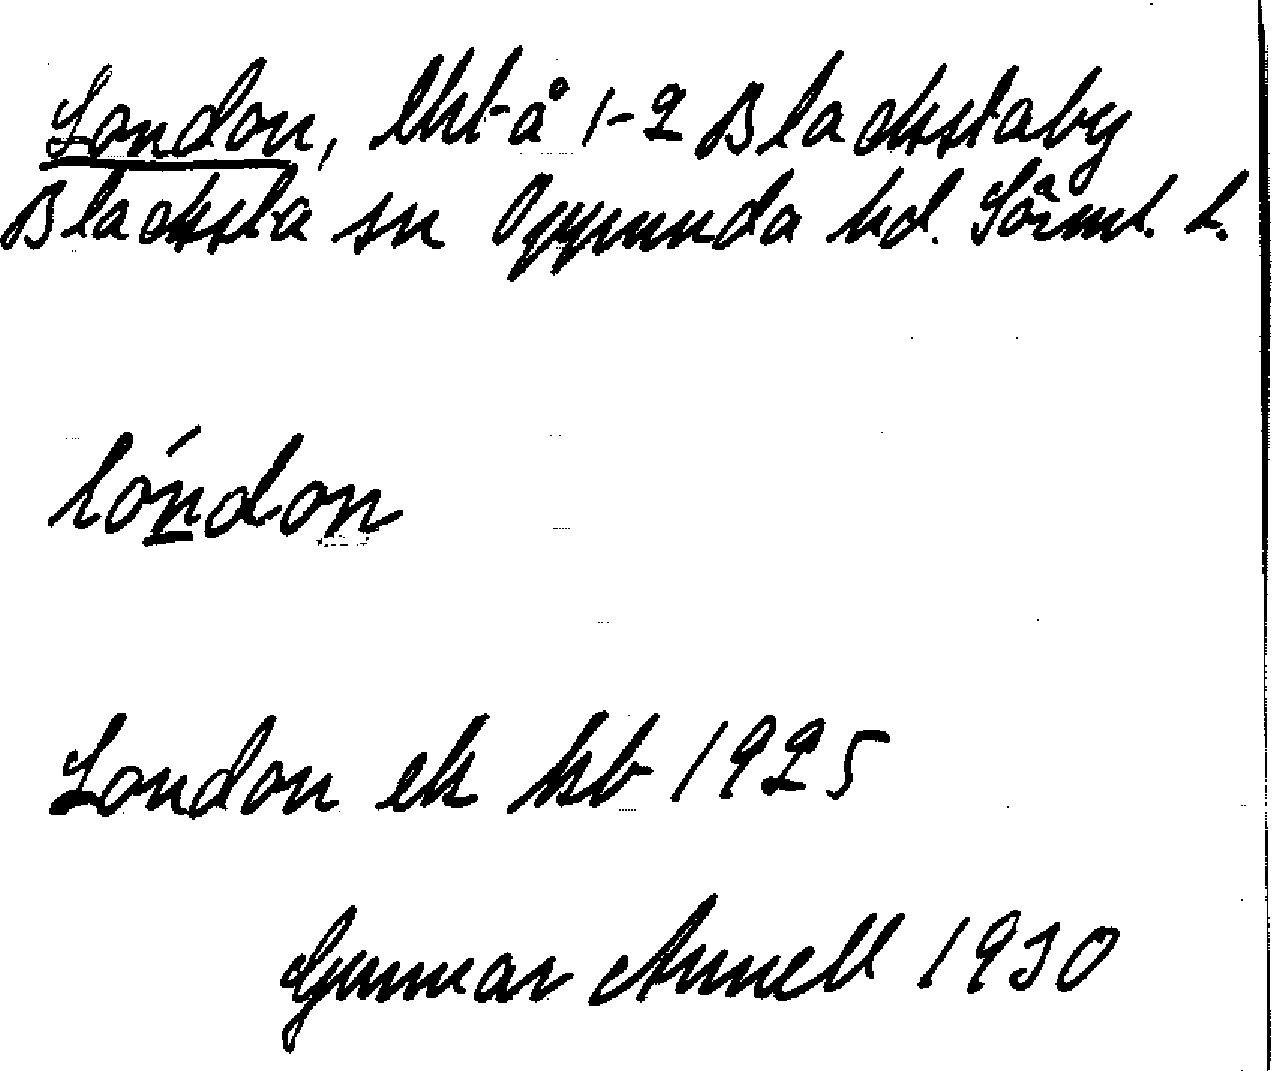 London, lht å 1-2 Blackstaby
Blacksta sn Oppunda hd. Sörml. l.
lóndon
London ek kb 1925
Gunnar Annell 1930